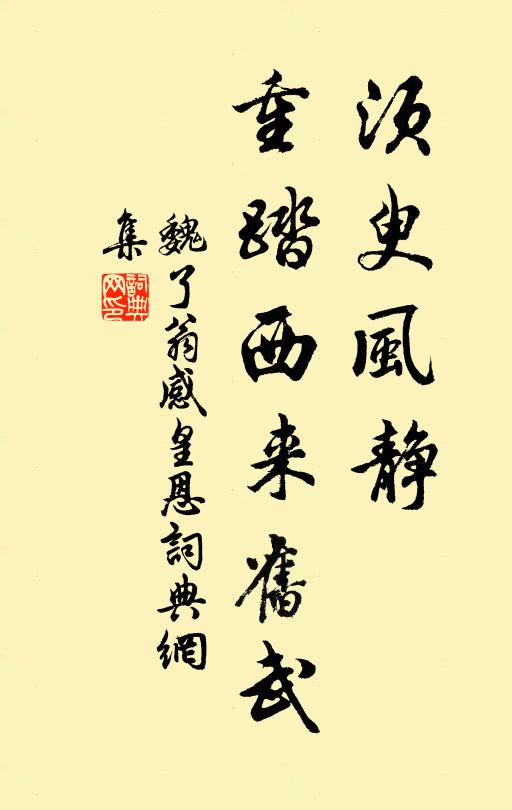 須臾風靜
重踏西来舊武
魏了翁感皇恩詞典網
集
詞典
网印